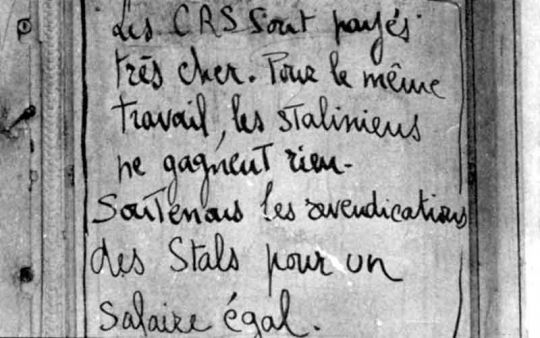 Les CRS sont payés
très cher. Pour le même
travail, les staliniens
ne gagnent rien.
Soutenons les revendications
des Stals pour un
salaire égal.